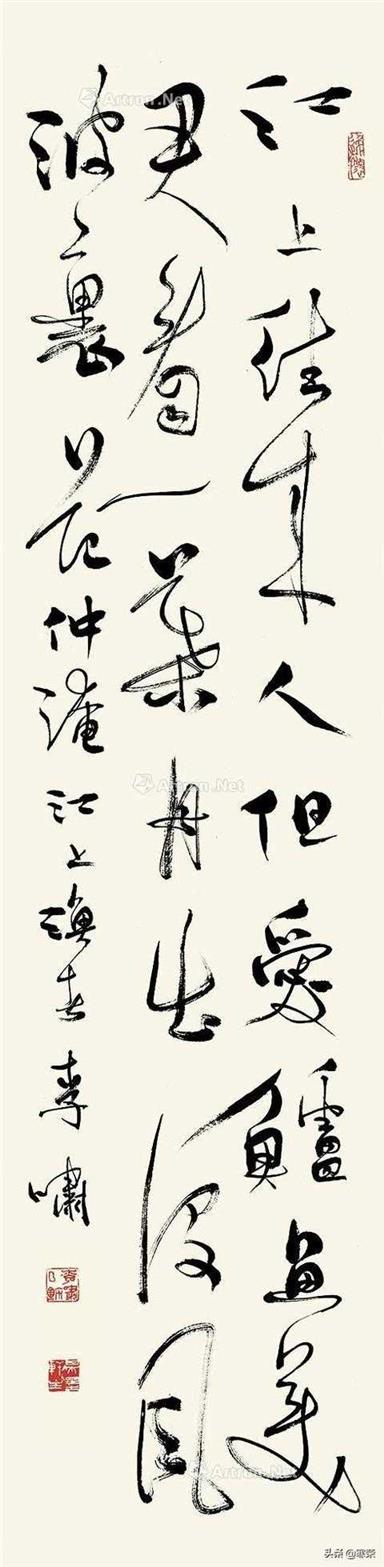 江上往来人但愛鱸魚美
君看一葉舟出没風
波裏 范仲淹江上漁者 李嘯
Artron.Net
Artron.Net
Artron.Net
头条